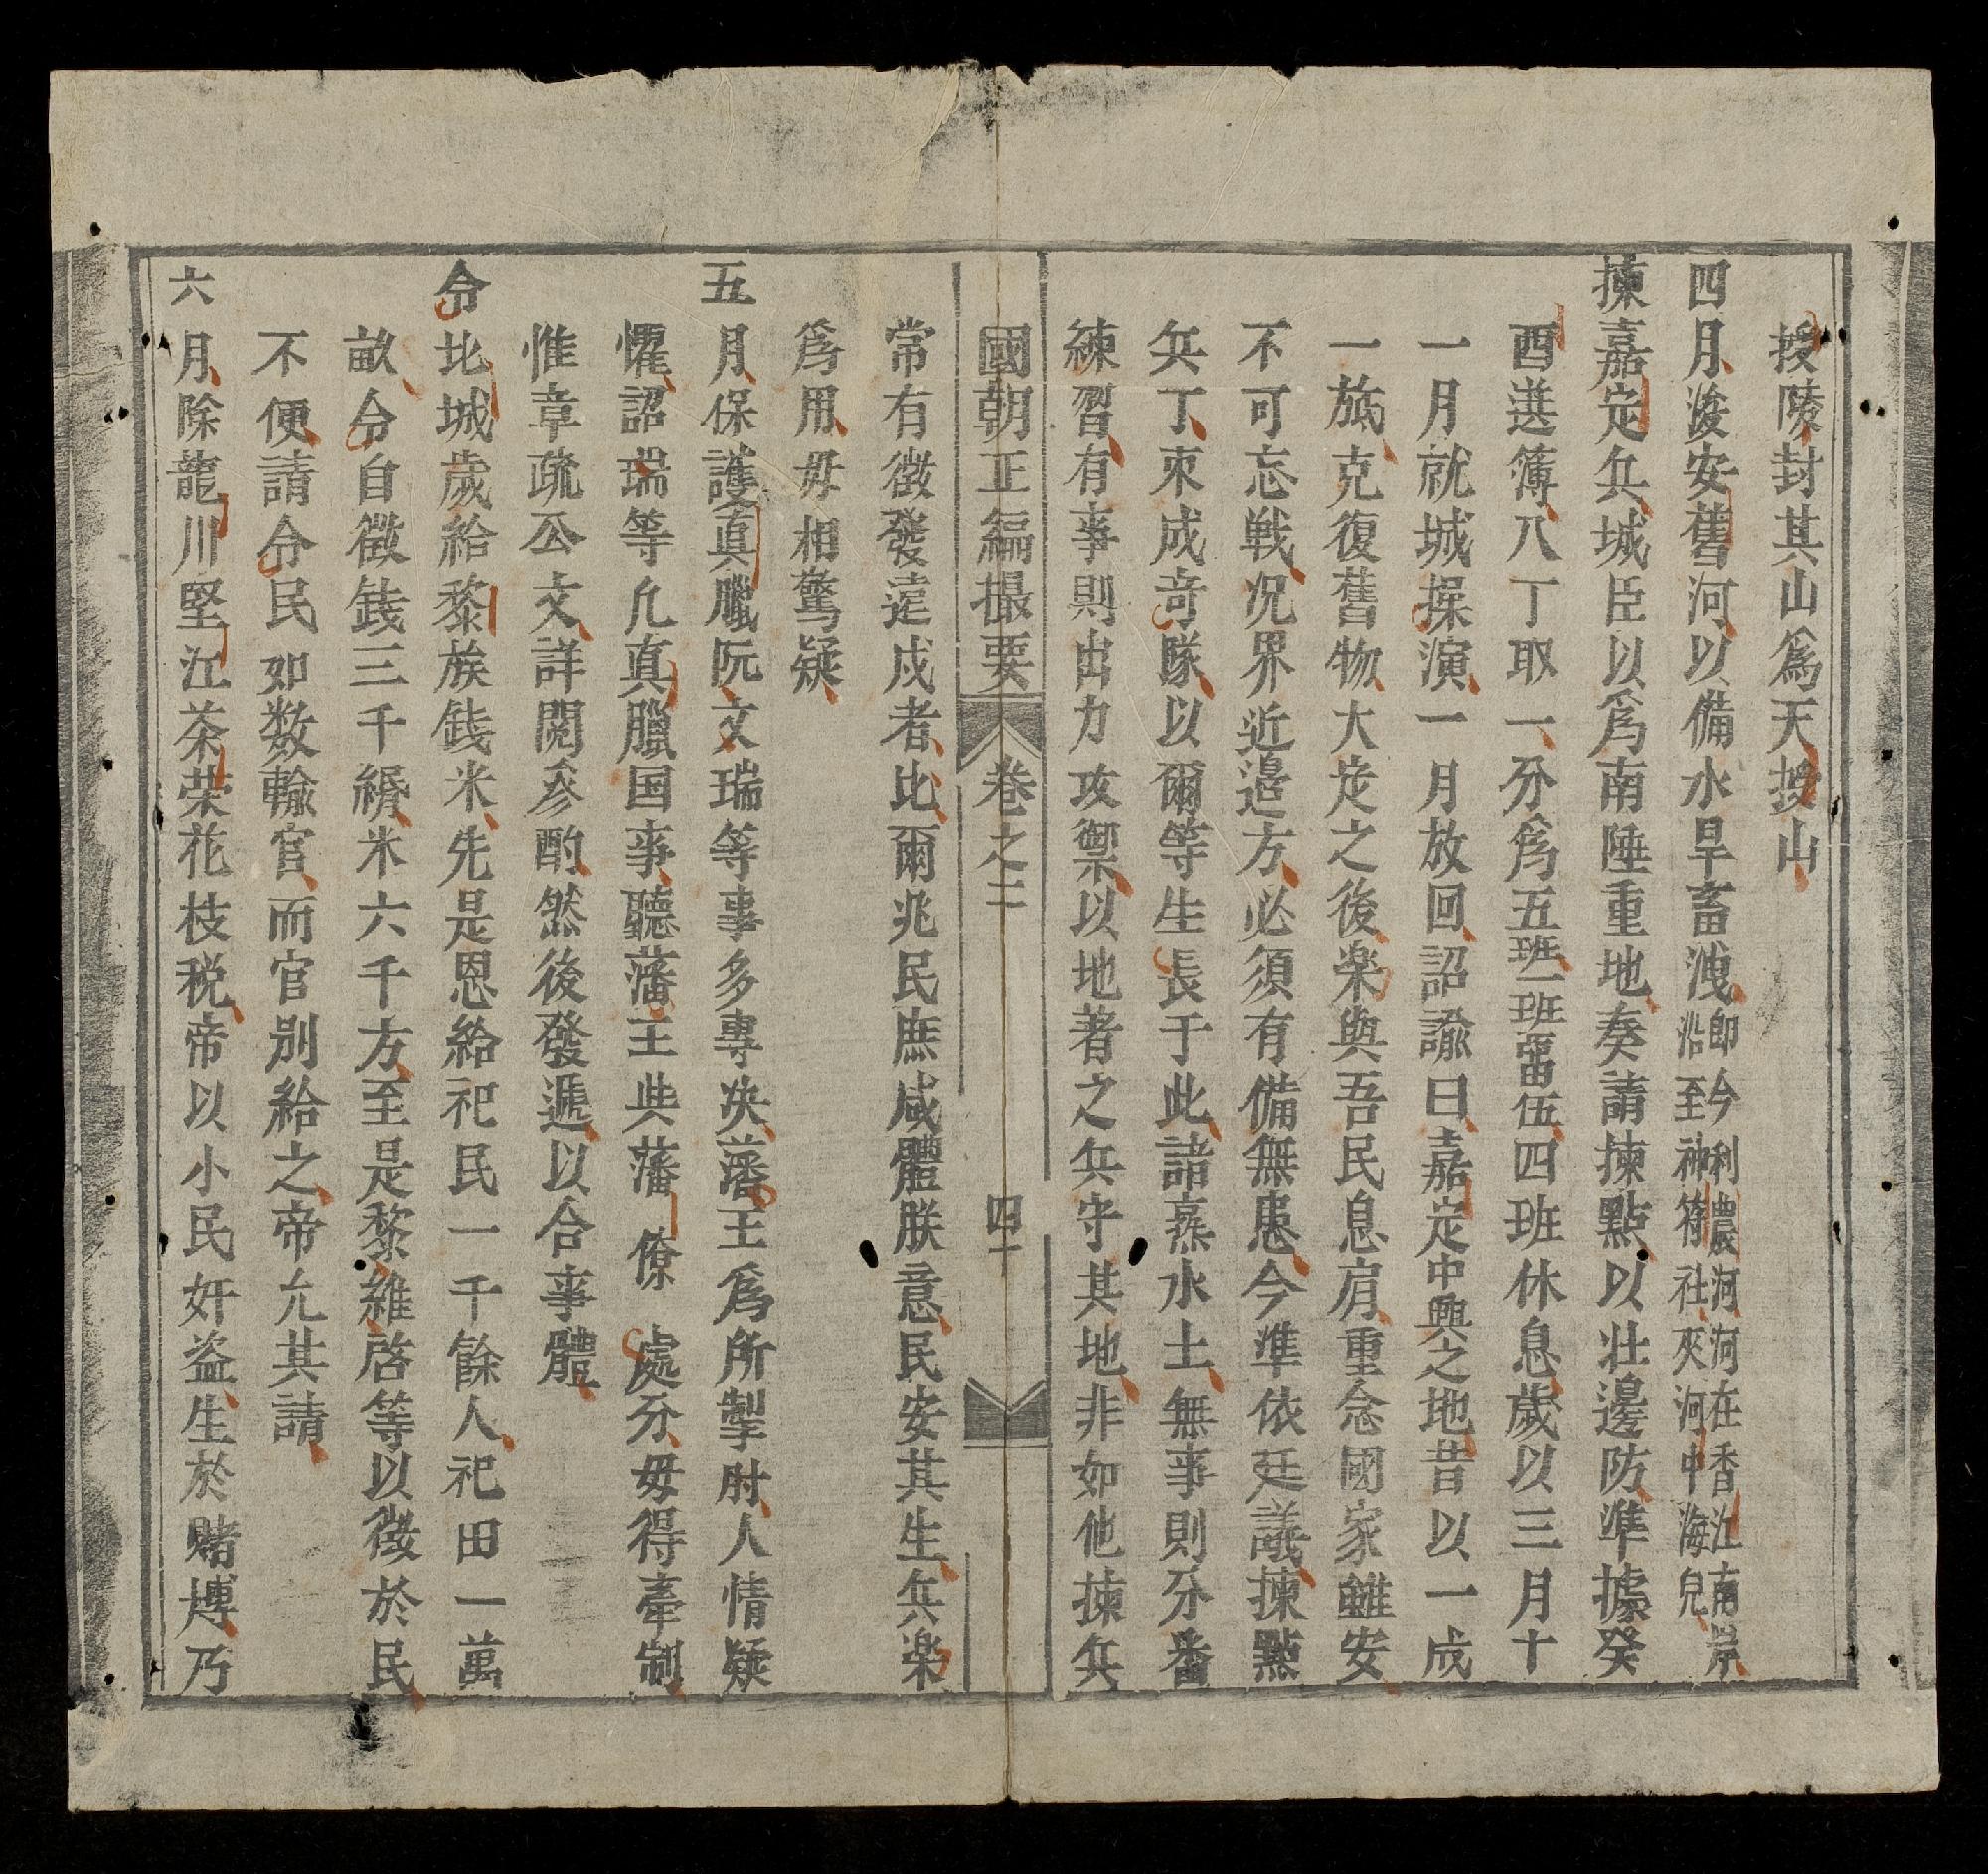 授陵封其山爲天授山
四月浚安舊河以備水旱畜洩即今利農河河在香江南岸沿至神符社夾河中海兒
揀嘉定兵城臣以爲南陲重地奏請揀點以壮邊防準據癸
酉選簿八丁取一分爲五班一班畱伍四班休息歲以三月十
一月就城操演一月放回詔諭曰嘉定中興之地昔以一成
一旅克復舊物大定之後楽與吾民息肩重念國家雖安
不可忘戦况界近邉方必須有備無患今準依廷議揀點
兵丁束成竒隊以爾等生長于此諸熹水土無事則分番
練習有事則出力攻禦以地著之兵守其地非如他揀兵
國朝正編撮要 卷之二 四十
常有徴發遠戍者比爾兆民庶咸體朕意民安其生兵楽
爲用毋相驚疑
五月保護真臘阮文瑞等事多專决藩王爲所掣肘人情疑
懼詔瑞等凢真臘国事聽藩王與藩僚處分毋得牽制
惟章疏公文詳閱參酌然後發遞以合事體
令北城歲給黎族銭米先是恩給祀民一千餘人祀田一萬
畝令自徴銭三千緡米六千方至是黎維啓等以徴於民
不便請令民如数輸官而官別給之帝允其請
六月除龍川堅江茶榮花枝税帝以小民奸盗生於賭博乃